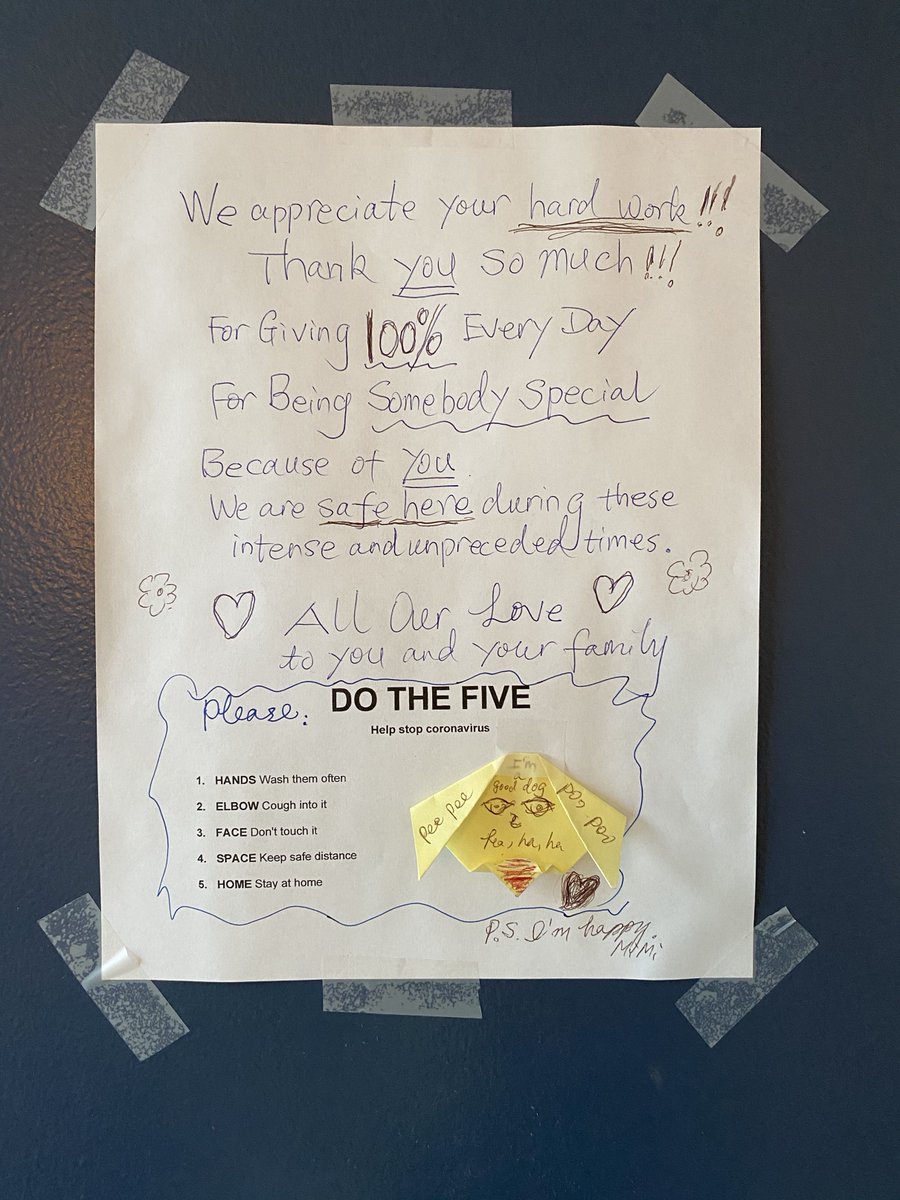 We appreciate your hard work!!!
Thank you so much!!!
For Giving 100% Every Day
For Being Somebody Special
Because of You
We are safe here during these
intense and unpreceded times.
All Our Love
to you and your family
please: DO THE FIVE
Help stop coronavirus
1. HANDS Wash them often
2. ELBOW Cough into it
3. FACE Don't touch it
4. SPACE Keep safe distance
5. HOME Stay at home
I'm
a
good dog
pee pee
poo poo
ha, ha, ha
P.S. I'm happy.